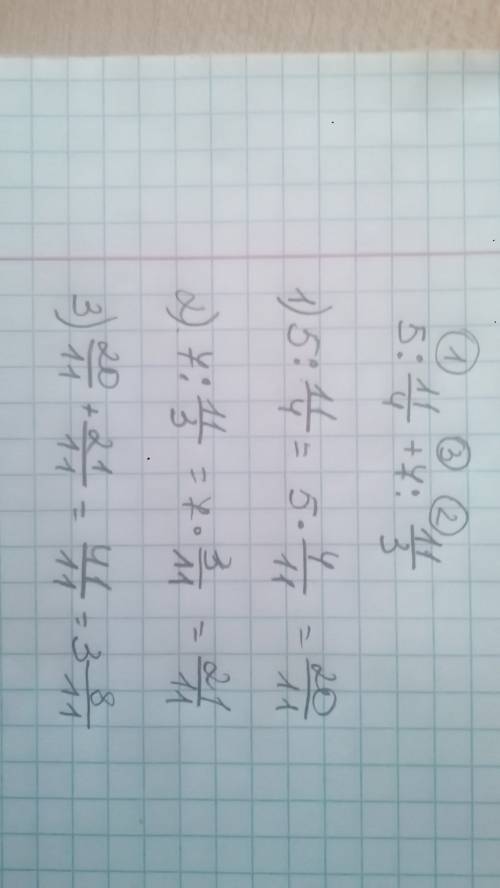 ① ③ ②
5 : 11/4 + 7 : 11/3
1) 5 : 11/4 = 5 · 4/11 = 20/11
2) 7 : 11/3 = 7 · 3/11 = 21/11
3) 20/11 + 21/11 = 41/11 = 3 8/11